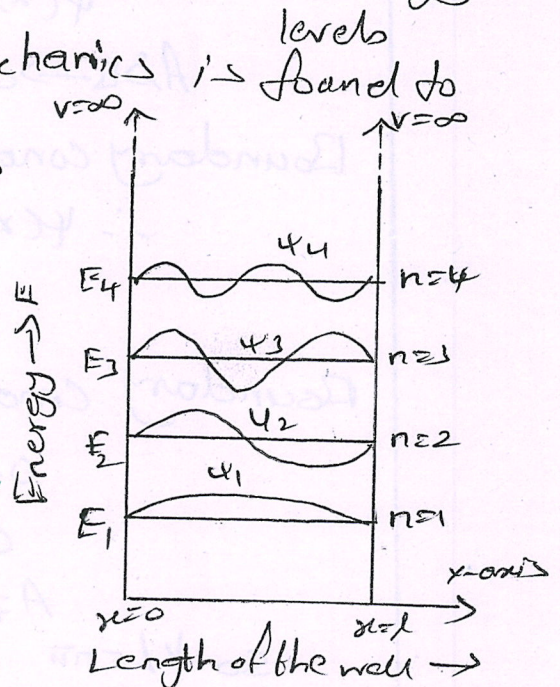 levels
chanics is found to
V=∞
V=∞
Energy → E
E4
ψ4
n=4
E3
ψ3
n=3
E2
ψ2
n=2
E1
ψ1
n=1
x-axis
x=0
x=l
Length of the well →